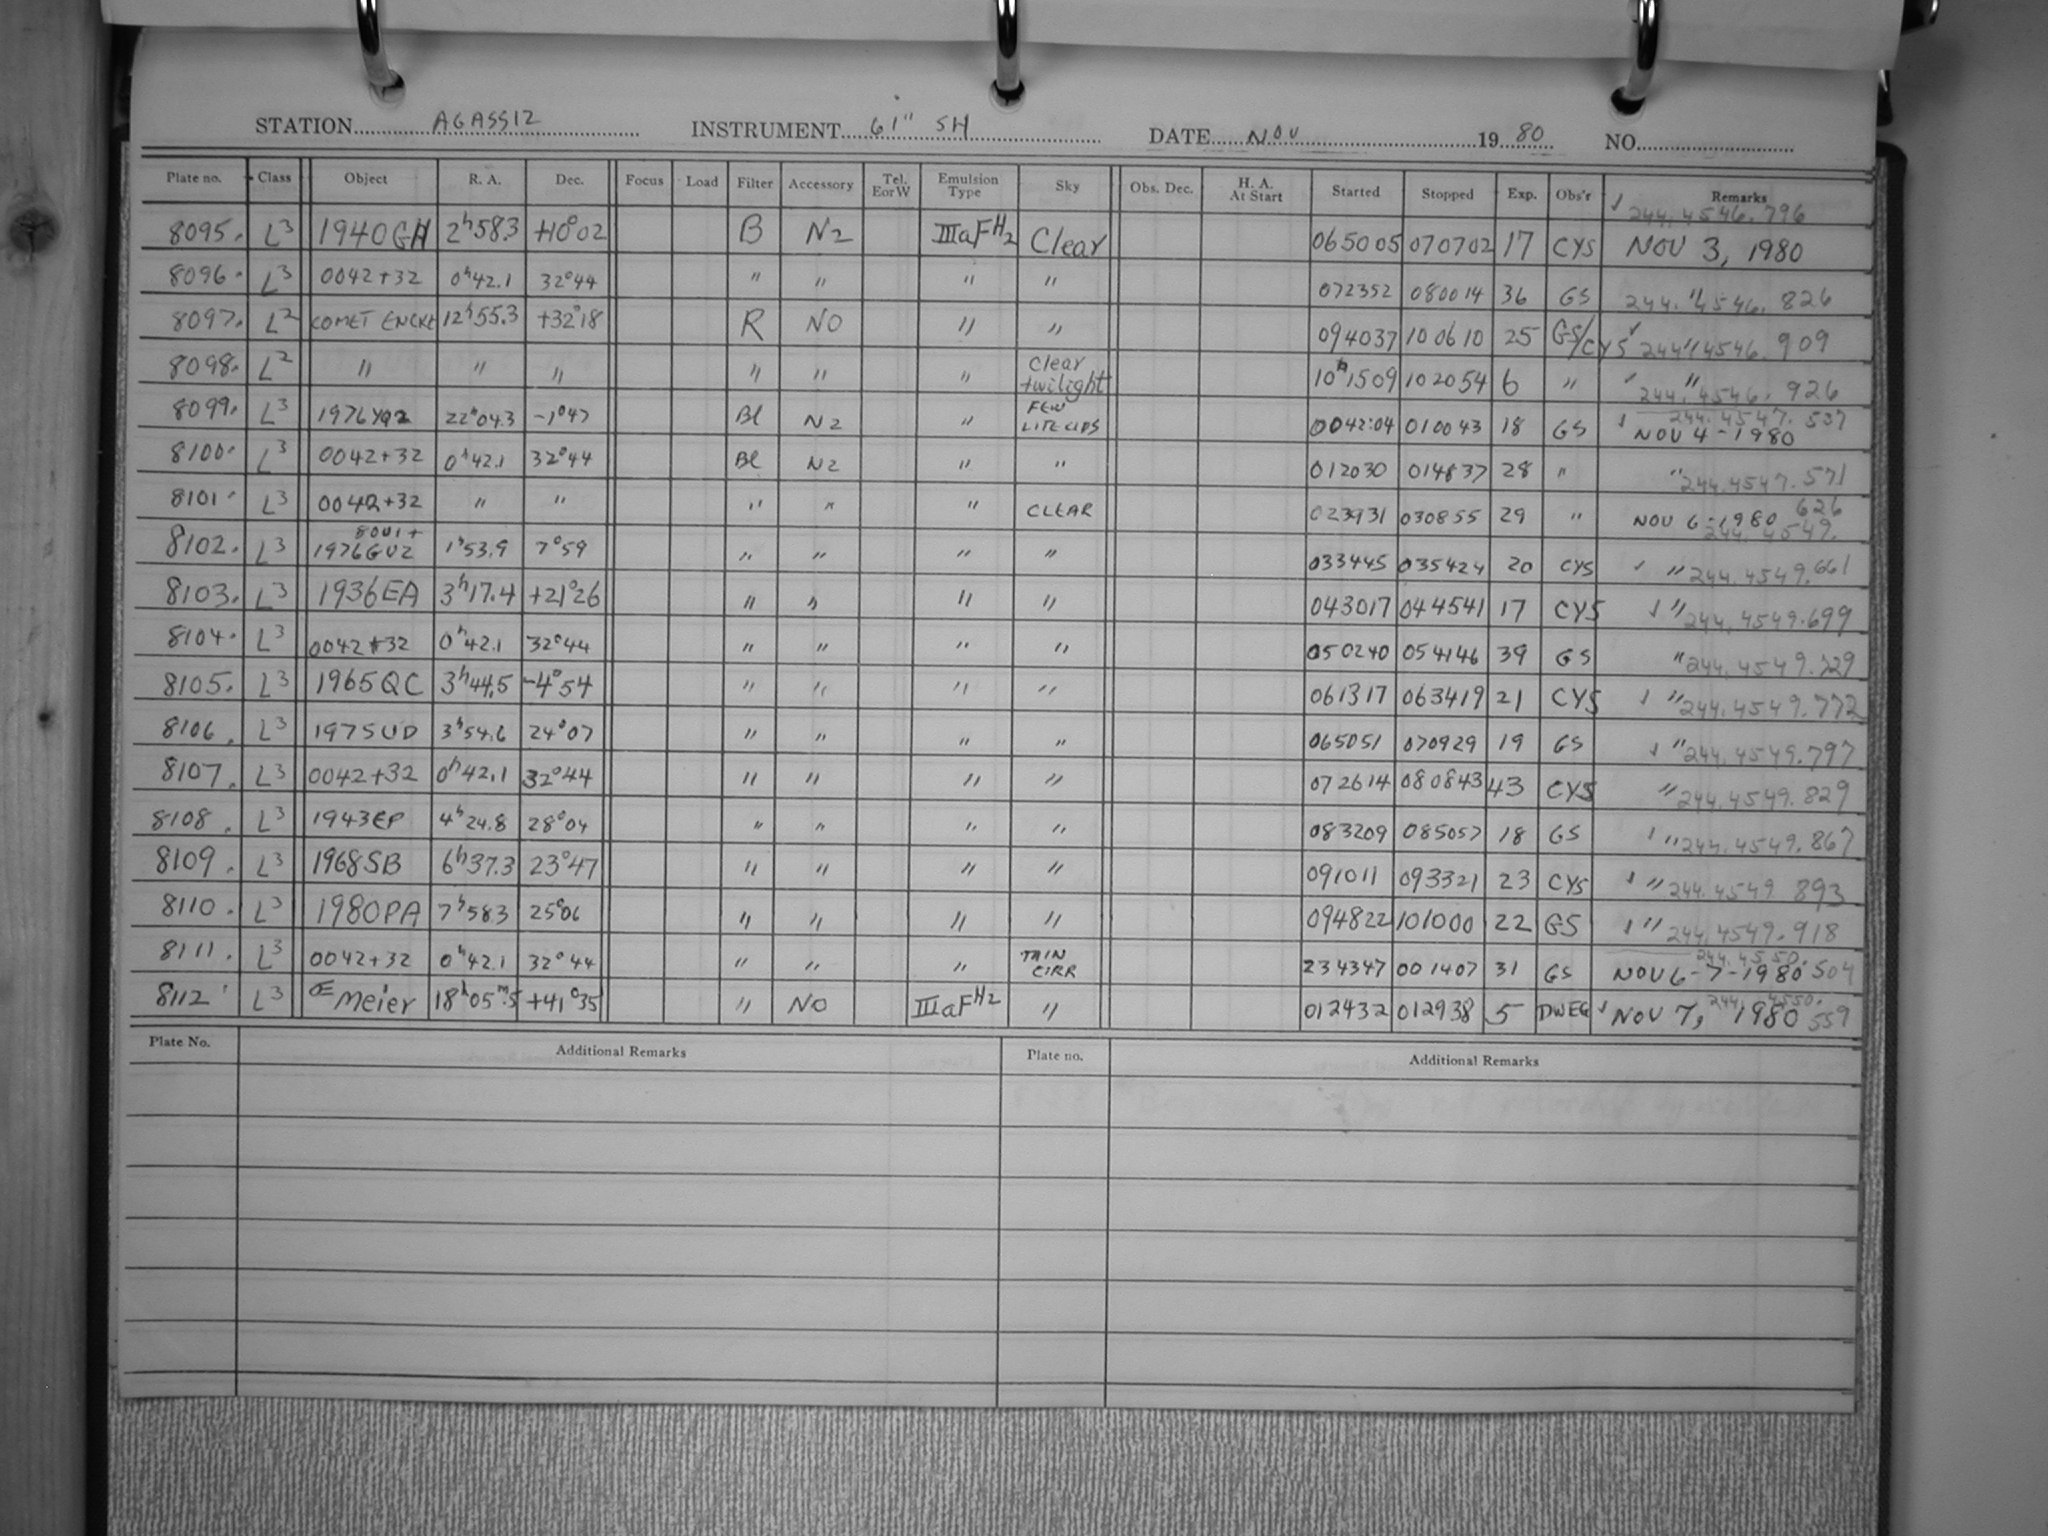 STATION AGASSIZ INSTRUMENT 61" SH DATE NOV 1980 NO.
Plate no. Class Object R. A. Dec. Focus Load Filter Accessory Tel. EorW Emulsion Type Sky Obs. Dec. H. A. At Start Started Stopped Exp. Obs'r Remarks
8095. L3 1940GH 2h58.3 +10°02 B N2 IIIaFH2 Clear 065005 070702 17 CYS √ 244.4546.796 NOV 3, 1980
8096. L3 0042+32 0h42.1 32°44 " " " " 072352 080014 36 GS " 244.4546.826
8097. L2 COMET ENCKE 12h55.3 +32°18 R NO " " 094037 100610 25 GS/CYS √ " 244.4546.909
8098. L2 " " " " " " Clear twilight 101509 102054 6 " √ " 244.4546.926
8099. L3 1976YQ2 22h04.3 -1°47 Bl N2 " FEW LITE CLDS 0042:04 010043 18 GS √ 244.4547.537 NOV 4-1980
8100. L3 0042+32 0h42.1 32°44 Bl N2 " " 012030 014837 28 " " 244.4547.571
8101. L3 0042+32 " " " " " CLEAR 023931 030855 29 " NOV 6-1980 244.4549.626
8102. L3 1976GUZ 1h53.9 7°59 " " " " 033445 035424 20 CYS √ " 244.4549.661
8103. L3 1936EA 3h17.4 +21°26 " " " " 043017 044541 17 CYS √ " 244.4549.699
8104. L3 0042+32 0h42.1 32°44 " " " " 050240 054146 39 GS " 244.4549.729
8105. L3 1965QC 3h44.5 -4°54 " " " " 061317 063419 21 CYS √ " 244.4549.772
8106. L3 1975UD 3h54.6 24°07 " " " " 065051 070929 19 GS √ " 244.4549.797
8107. L3 0042+32 0h42.1 32°44 " " " " 072614 080843 43 CYS " 244.4549.829
8108. L3 1943EP 4h24.8 28°04 " " " " 083209 085057 18 GS √ " 244.4549.867
8109. L3 1968SB 6h37.3 23°47 " " " " 091011 093321 23 CYS √ " 244.4549 893
8110. L3 1980PA 7h583 25°06 " " " " 094822 101000 22 GS √ " 244.4549.918
8111. L3 0042+32 0h42.1 32°44 " " " THIN CIRR 234347 001407 31 GS NOV 6-7-1980 244.4550.504
8112 L3 Meier 18h05m.5 +41°35 " NO IIIaFH2 " 012432 012938 5 DWEG √ NOV 7, 1980 244.4550.559
Plate No. Additional Remarks Plate no. Additional Remarks